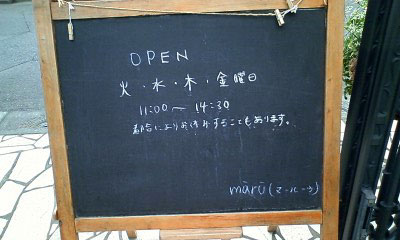 OPEN
火・水・木・金曜日
11:00～14:30
都合によりお休みすることもあります。
märü(マールゥ)